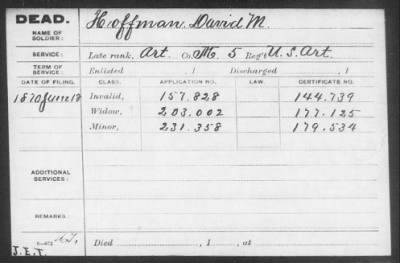 DEAD.
NAME OF SOLDIER: Hoffman, David M.
SERVICE: Late rank, Art. Co. M, 5 Reg't U.S. Art.
TERM OF SERVICE: Enlisted , 1 Discharged , 1
DATE OF FILING. CLASS. APPLICATION NO. LAW. CERTIFICATE NO.
1870 June 18 Invalid, 157.828 144.739
Widow, 203.002 177.125
Minor, 231.358 179.534
ADDITIONAL SERVICES:
REMARKS:
Died , 1 , at
J.E.T.